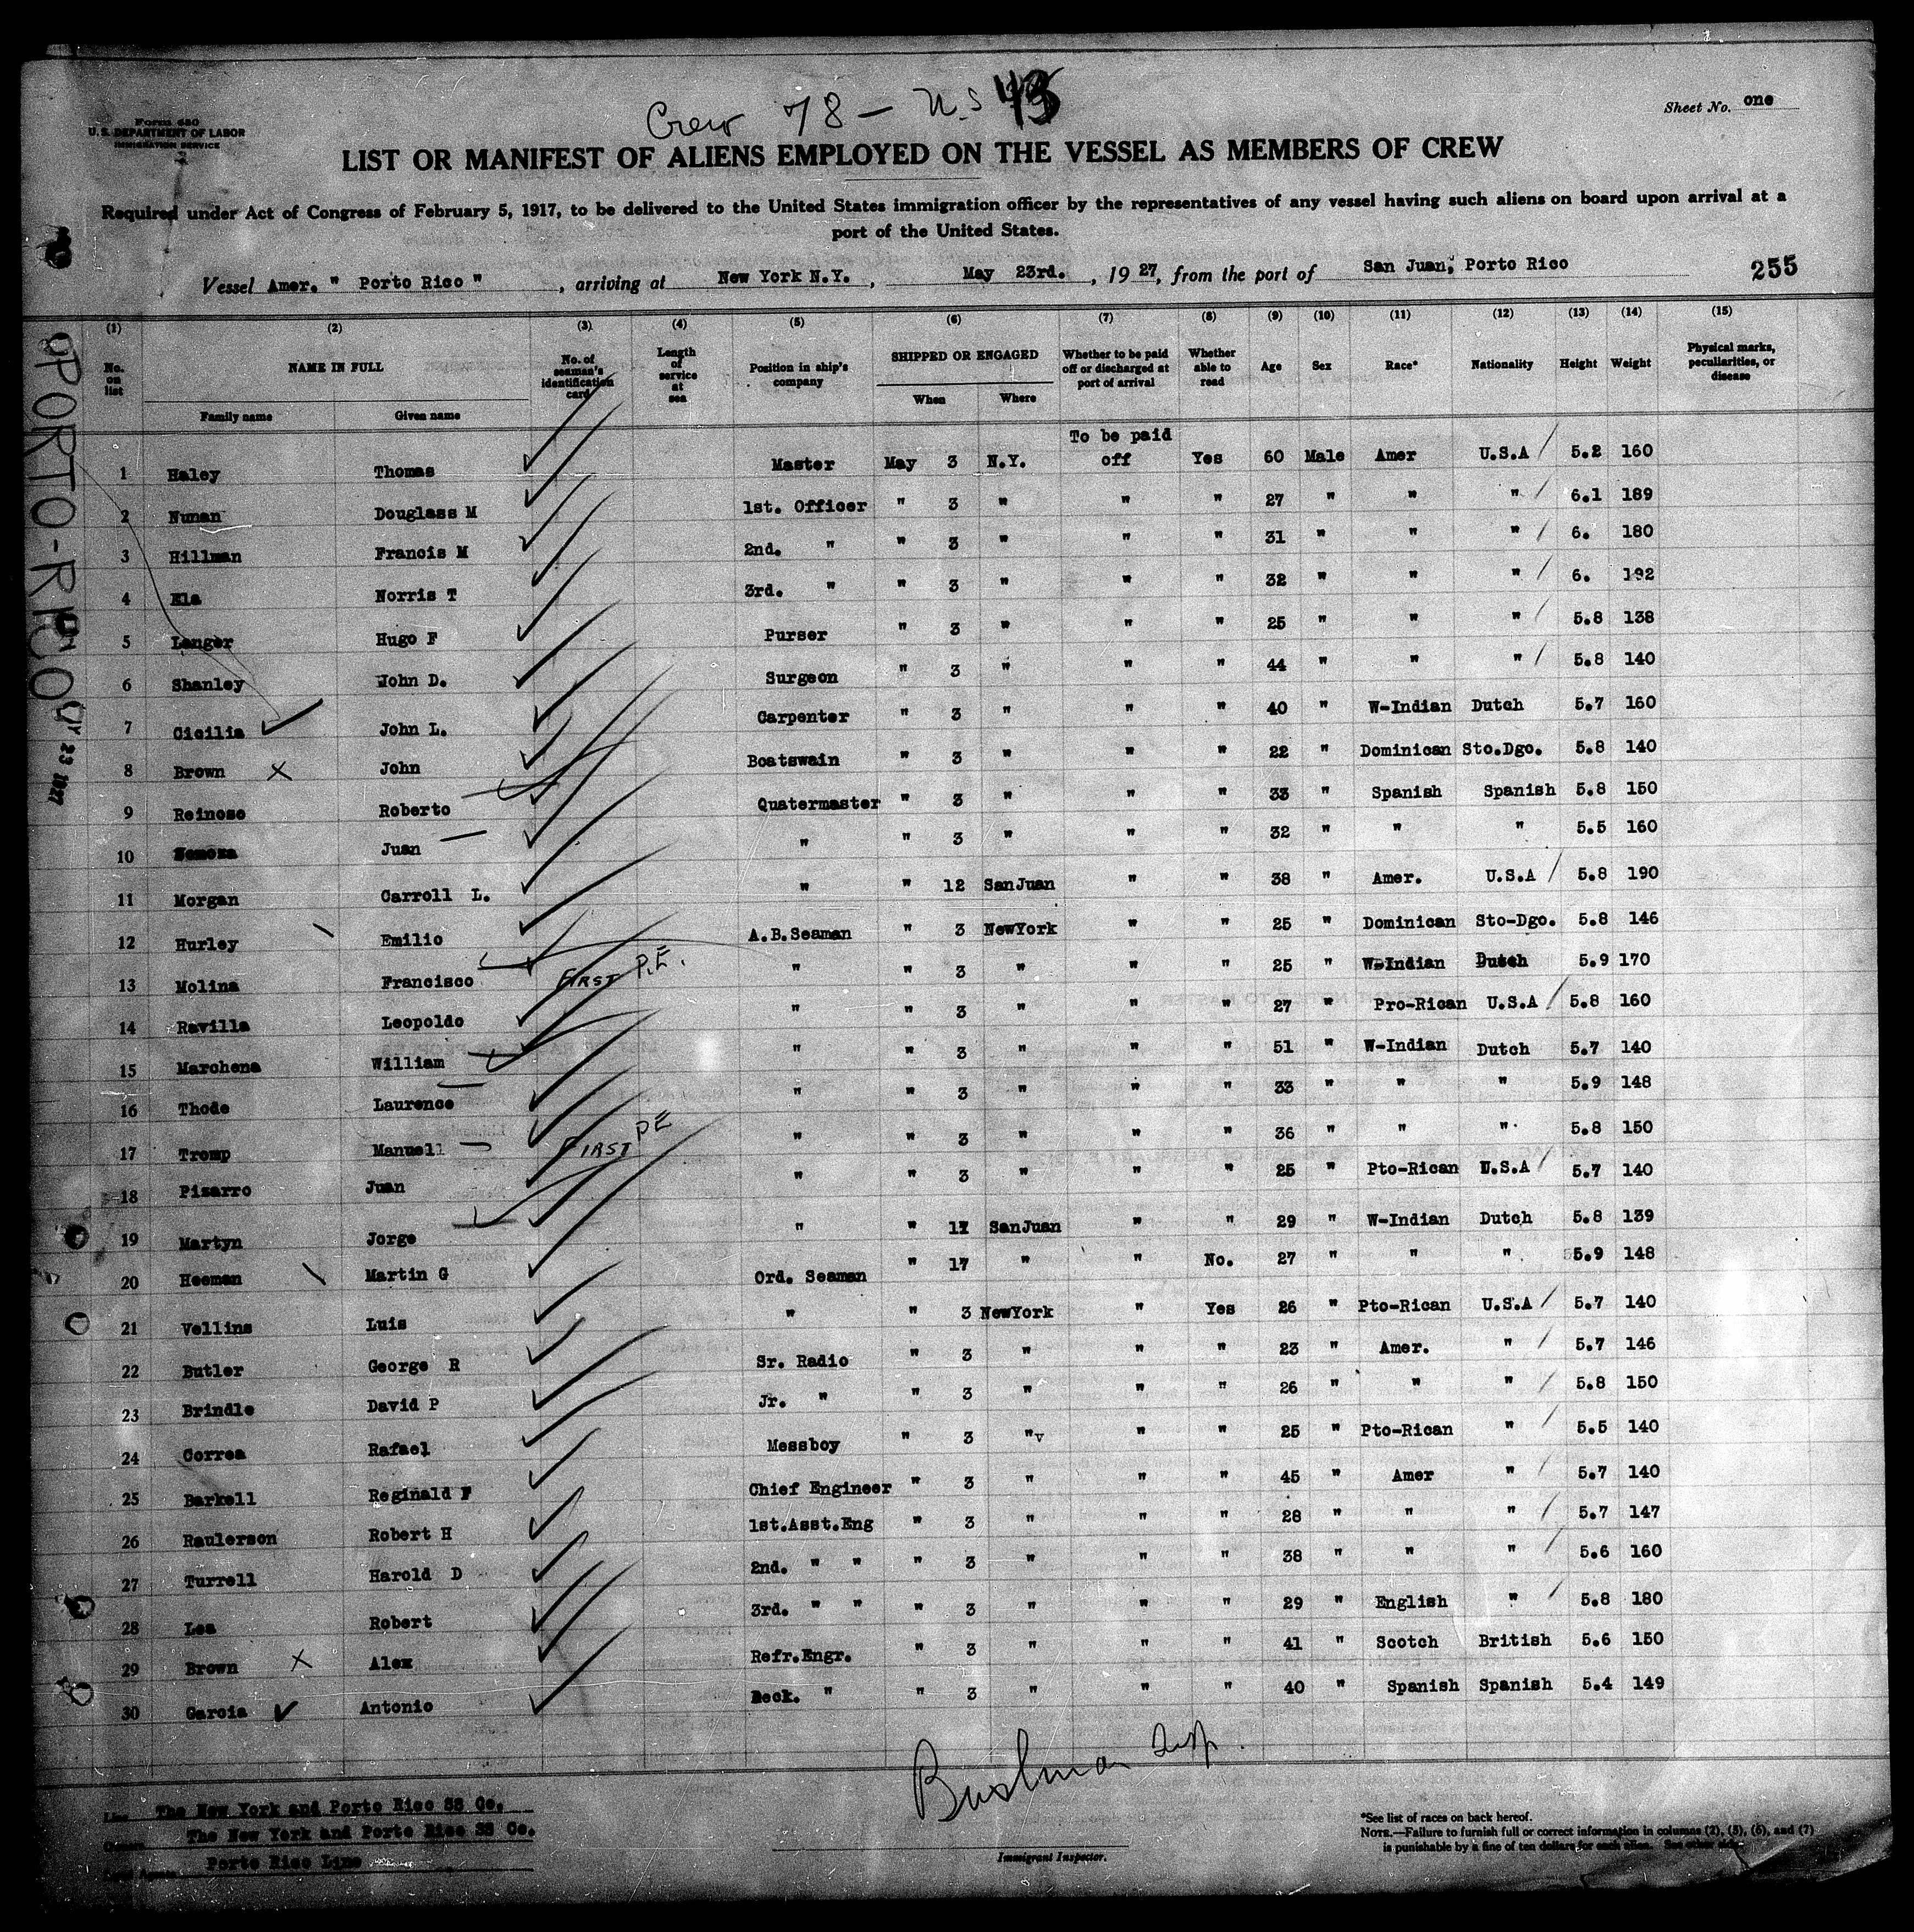 Crew 78 — U.S 43
Form 680
U. S. DEPARTMENT OF LABOR
IMMIGRATION SERVICE
Sheet No. one
LIST OR MANIFEST OF ALIENS EMPLOYED ON THE VESSEL AS MEMBERS OF CREW
Required under Act of Congress of February 5, 1917, to be delivered to the United States immigration officer by the representatives of any vessel having such aliens on board upon arrival at a
port of the United States.
Vessel Amer. " Porto Rico ", arriving at New York N.Y., May 23rd., 1927, from the port of San Juan, Porto Rico 255
PORTO-RICO
MAY 23 1927
(1) (2) (3) (4) (5) (6) (7) (8) (9) (10) (11) (12) (13) (14) (15)
No. on list NAME IN FULL Family name Given name No. of seaman's identification card Length of service at sea Position in ship's company SHIPPED OR ENGAGED When Where Whether to be paid off or discharged at port of arrival Whether able to read Age Sex Race* Nationality Height Weight Physical marks, peculiarities, or disease
1 Haley Thomas Master May 3 N.Y. To be paid off Yes 60 Male Amer U.S.A 5.2 160
2 Nunan Douglass M 1st. Officer " 3 " " " 27 " " " 6.1 189
3 Hillman Francis M 2nd. " " 3 " " " 31 " " " 6. 180
4 Ela Norris T 3rd. " " 3 " " " 32 " " " 6. 192
5 Langer Hugo F Purser " 3 " " " 25 " " " 5.8 138
6 Shanley John D. Surgeon " 3 " " " 44 " " " 5.8 140
7 Cicilia John L. Carpenter " 3 " " " 40 " W-Indian Dutch 5.7 160
8 Brown X John Boatswain " 3 " " " 22 " Dominican Sto.Dgo. 5.8 140
9 Reinoso Roberto Quatermaster " 3 " " " 33 " Spanish Spanish 5.8 150
10 Juan " " 3 " " " 32 " " " 5.5 160
11 Morgan Carroll L. " " 12 SanJuan " " 38 " Amer. U.S.A 5.8 190
12 Hurley Emilio A.B.Seaman " 3 NewYork " " 25 " Dominican Sto-Dgo. 5.8 146
13 Molina Francisco FIRST P.E. " " 3 " " " 25 " W-Indian Dutch 5.9 170
14 Ravilla Leopoldo " " 3 " " " 27 " Pro-Rican U.S.A 5.8 160
15 Marchena William " " 3 " " " 51 " W-Indian Dutch 5.7 140
16 Thode Laurence " " 3 " " " 33 " " " 5.9 148
17 Tromp Manuell FIRST PE " " 3 " " " 36 " " " 5.8 150
18 Pizarro Juan " " 3 " " " 25 " Pto-Rican U.S.A 5.7 140
19 Martyn Jorge " " 17 SanJuan " " 29 " W-Indian Dutch 5.8 139
20 Heeman Martin G Ord. Seaman " 17 " " No. 27 " " " 5.9 148
21 Vellins Luis " " 3 NewYork " Yes 26 " Pto-Rican U.S.A 5.7 140
22 Butler George R Sr. Radio " 3 " " " 23 " Amer. " 5.7 146
23 Brindle David P Jr. " " 3 " " " 26 " " " 5.8 150
24 Correa Rafael Messboy " 3 " " " 25 " Pto-Rican " 5.5 140
25 Barkell Reginald F Chief Engineer " 3 " " " 45 " Amer " 5.7 140
26 Raulerson Robert H 1st.Asst.Eng " 3 " " " 28 " " " 5.7 147
27 Turrell Harold D 2nd. " " " 3 " " " 38 " " " 5.6 160
28 Lea Robert 3rd. " " " 3 " " " 29 " English " 5.8 180
29 Brown X Alex Refr.Engr. " 3 " " " 41 " Scotch British 5.6 150
30 Garcia Antonio Deck. " " 3 " " " 40 " Spanish Spanish 5.4 149
Bushman Insp.
Immigrant Inspector.
Line The New York and Porto Rico SS Co.
Owners The New York and Porto Rico SS Co.
Porto Rico Line
*See list of races on back hereof.
NOTE.—Failure to furnish full or correct information in columns (2), (5), (6), and (7)
is punishable by a fine of ten dollars for each alien. See other side.